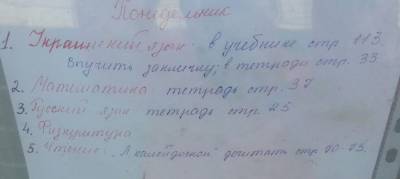 Понедельник
1. Украинский язык: в учебнике стр. 113.
Выучить закличку; в тетради стр. 33
2. Математика тетрадь стр. 37
3. Русский язык тетрадь стр. 25
4. Физкультура
5. Чтение: "А калейдоской" дочитать стр. 70-75.